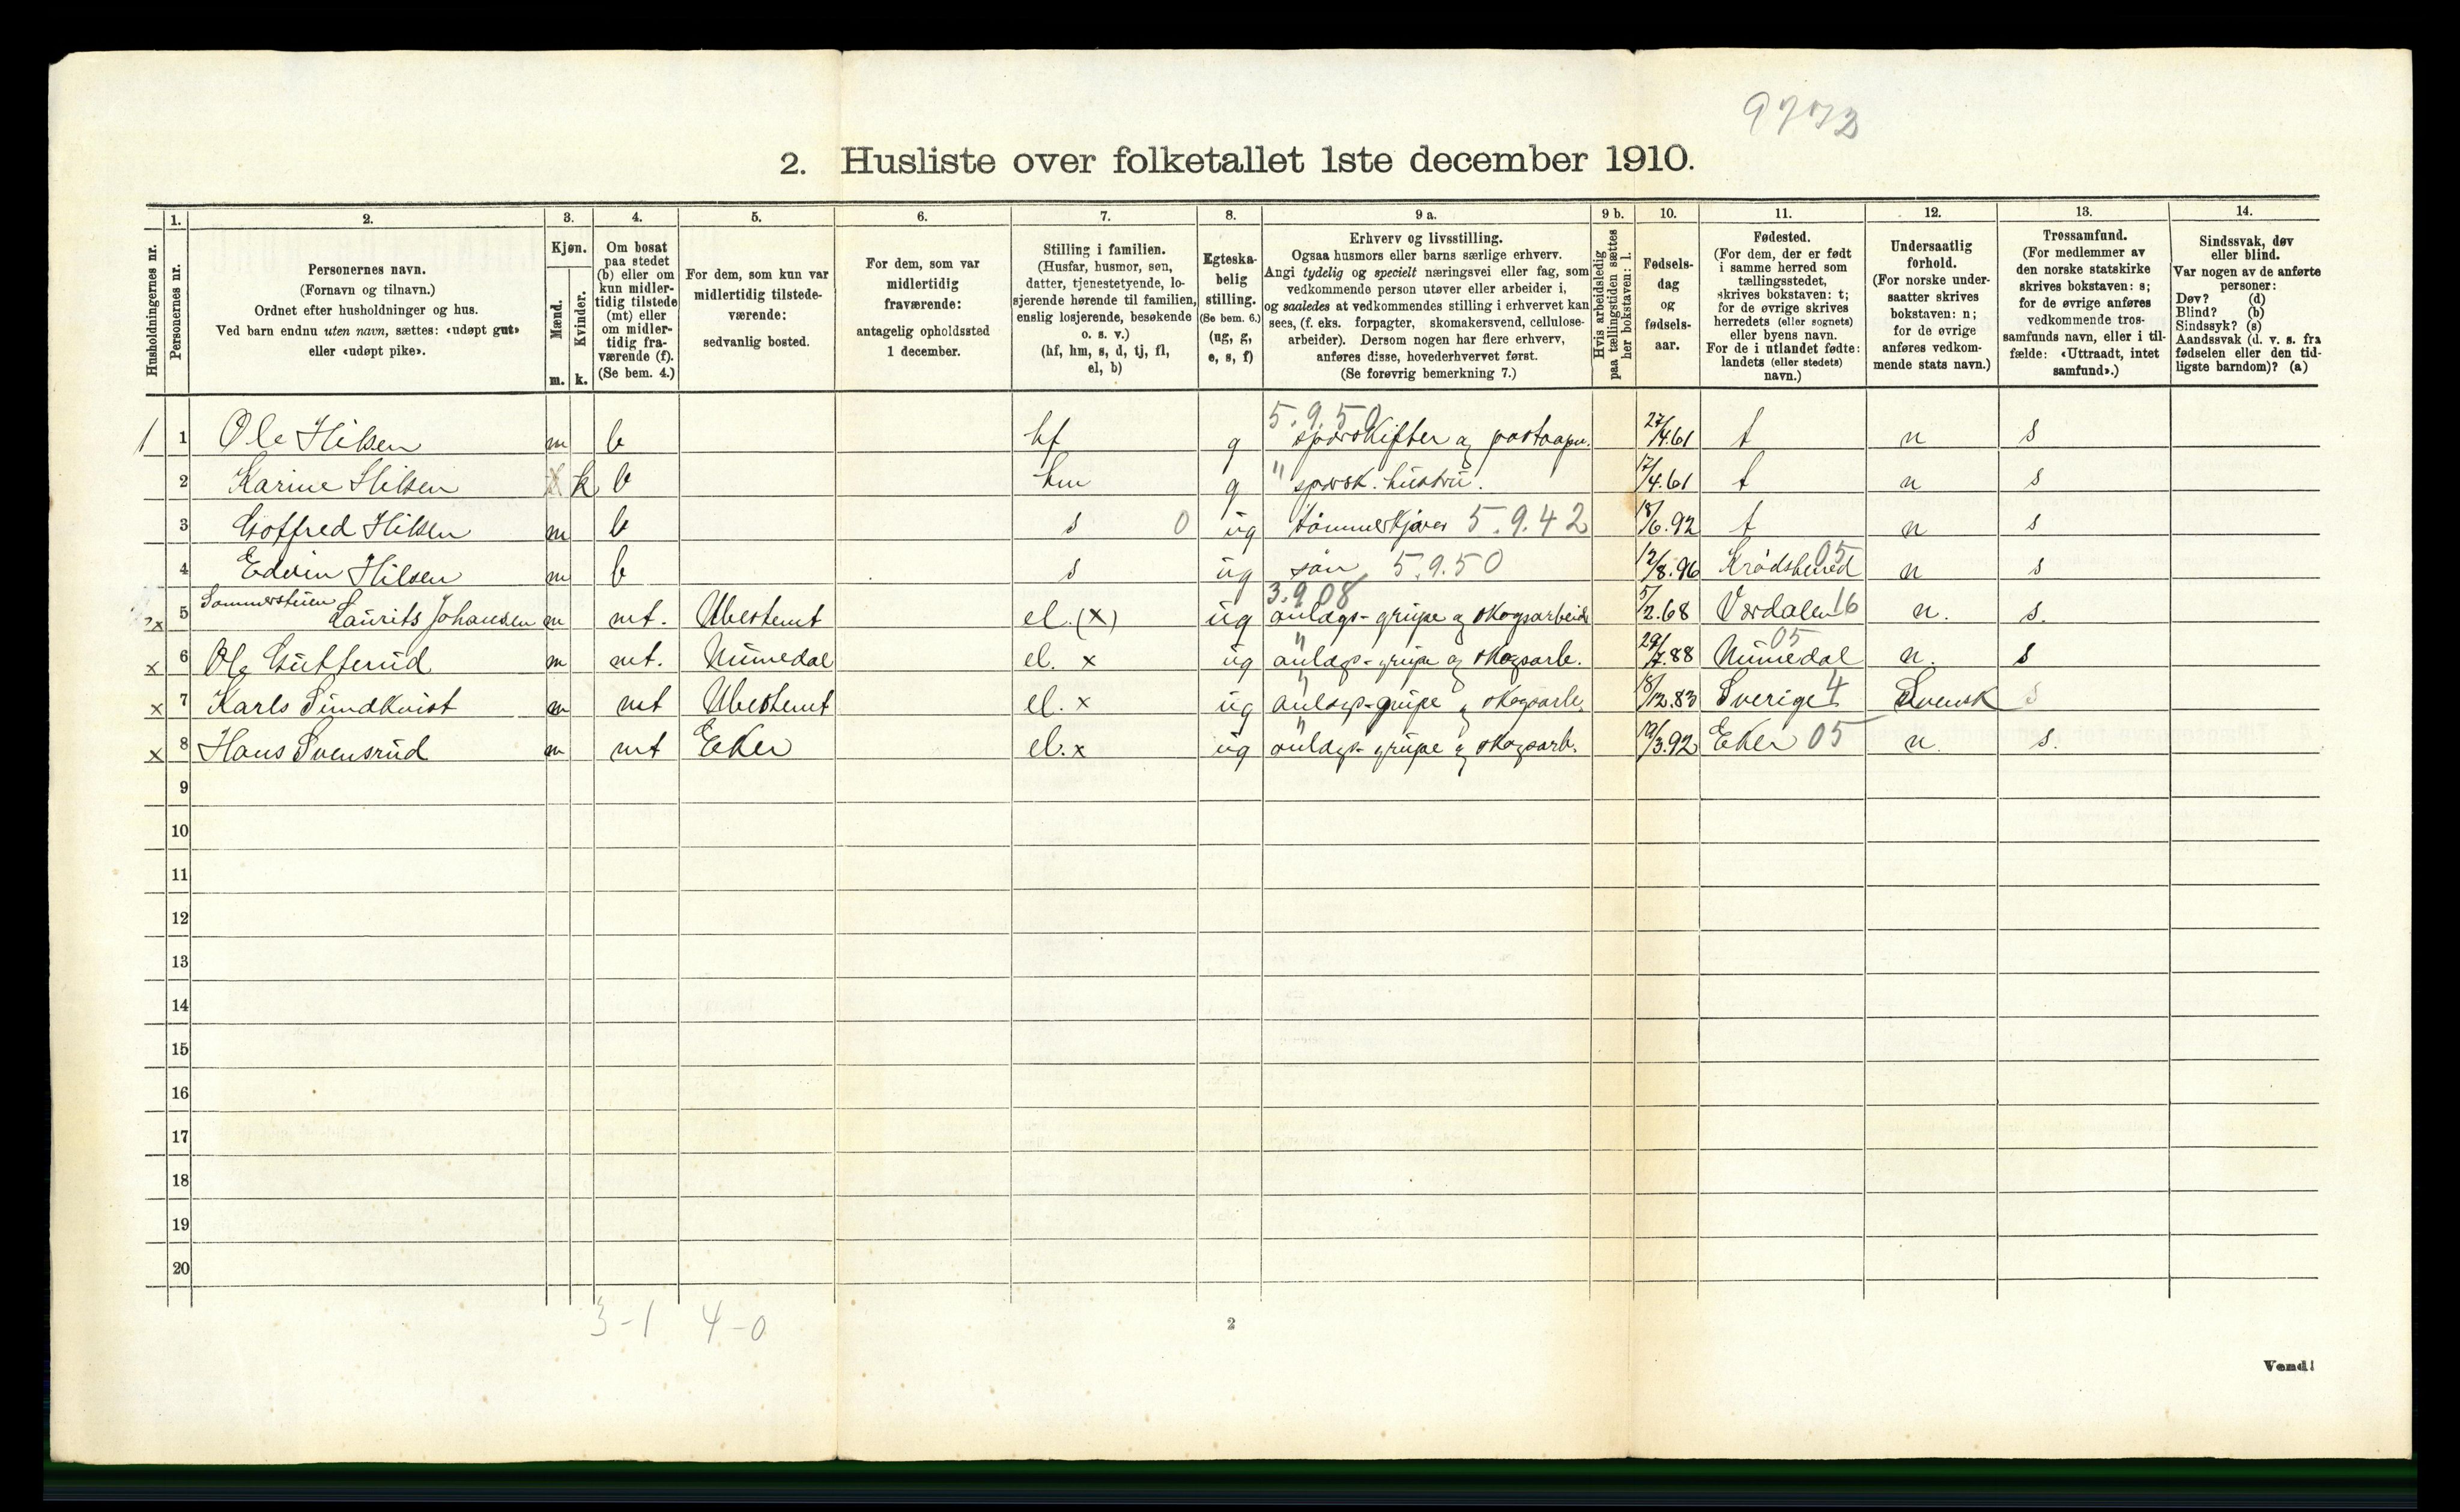 9773
2. Husliste over folketallet 1ste december 1910.
Husholdningernes nr.
1. Personernes nr.
2. Personernes navn.
(Fornavn og tilnavn.)
Ordnet efter husholdninger og hus.
Ved barn endnu uten navn, sættes: «udøpt gut»
eller «udøpt pike».
3. Kjøn.
Mænd. m.
Kvinder. k.
4. Om bosat
paa stedet
(b) eller om
kun midler-
tidig tilstede
(mt) eller
om midler-
tidig fra-
værende (f).
(Se bem. 4.)
5. For dem, som kun var
midlertidig tilstede-
værende:
sedvanlig bosted.
6. For dem, som var
midlertidig
fraværende:
antagelig opholdssted
1 december.
7. Stilling i familien.
(Husfar, husmor, søn,
datter, tjenestetyende, lo-
sjerende hørende til familien,
enslig losjerende, besøkende
o. s. v.)
(hf, hm, s, d, tj, fl,
el, b)
8. Egteska-
belig
stilling.
(Se bem. 6.)
(ug, g,
e, s, f)
9 a. Erhverv og livsstilling.
Ogsaa husmors eller barns særlige erhverv.
Angi tydelig og specielt næringsvei eller fag, som
vedkommende person utøver eller arbeider i,
og saaledes at vedkommendes stilling i erhvervet kan
sees, (f. eks. forpagter, skomakersvend, cellulose-
arbeider). Dersom nogen har flere erhverv,
anføres disse, hovederhvervet først.
(Se forøvrig bemerkning 7.)
9 b. Hvis arbeidsledig
paa tællingstiden sættes
her bokstaven: l.
10. Fødsels-
dag
og
fødsels-
aar.
11. Fødested.
(For dem, der er født
i samme herred som
tællingsstedet,
skrives bokstaven: t;
for de øvrige skrives
herredets (eller sognets)
eller byens navn.
For de i utlandet fødte:
landets (eller stedets)
navn.)
12. Undersaatlig
forhold.
(For norske under-
saatter skrives
bokstaven: n;
for de øvrige
anføres vedkom-
mende stats navn.)
13. Trossamfund.
(For medlemmer av
den norske statskirke
skrives bokstaven: s;
for de øvrige anføres
vedkommende tros-
samfunds navn, eller i til-
fælde: «Uttraadt, intet
samfund».)
14. Sindssvak, døv
eller blind.
Var nogen av de anførte
personer:
Døv? (d)
Blind? (b)
Sindssyk? (s)
Aandssvak (d. v. s. fra
fødselen eller den tid-
ligste barndom)? (a)
5.9.50
1 1 Ole Hilsen m b hf g sporskifter og postaapn. 27/4.61 t n s
2 Karine Hilsen k b hm g " sporsk. hustru. 17/4.61 t n s
3 Gotfred Hilsen m b s 0 ug tømmerkjører 5.9.42 18/6.92 t n s
4 Edvin Hilsen m b s ug søn 5.9.50 12/8.96 Krødsherred 05 n s
Sommerstuen 3.9.08
x 5 Laurits Johansen m mt. Ubestemt el. (x) ug anlægs-grupe og skogsarbeid 5/2.68 Værdalen 16 n. s.
x 6 Ole Gutterud m mt. Numedal el. x ug anlægs-grupe og skogsarb. 29/7.88 Numedal 05 n. s
x 7 Karls Sundkvist m mt Ubestemt el. x ug anlægs-grupe og skogsarb. 18/12.83 Sverige 4 Svensk s
x 8 Hans Svensrud m mt Eker el. x ug anlægs-grupe og skogsarb. 19/3.92 Eker 05 n. s.
9
10
11
12
13
14
15
16
17
18
19
20
3-1 4-0
2
Vend!